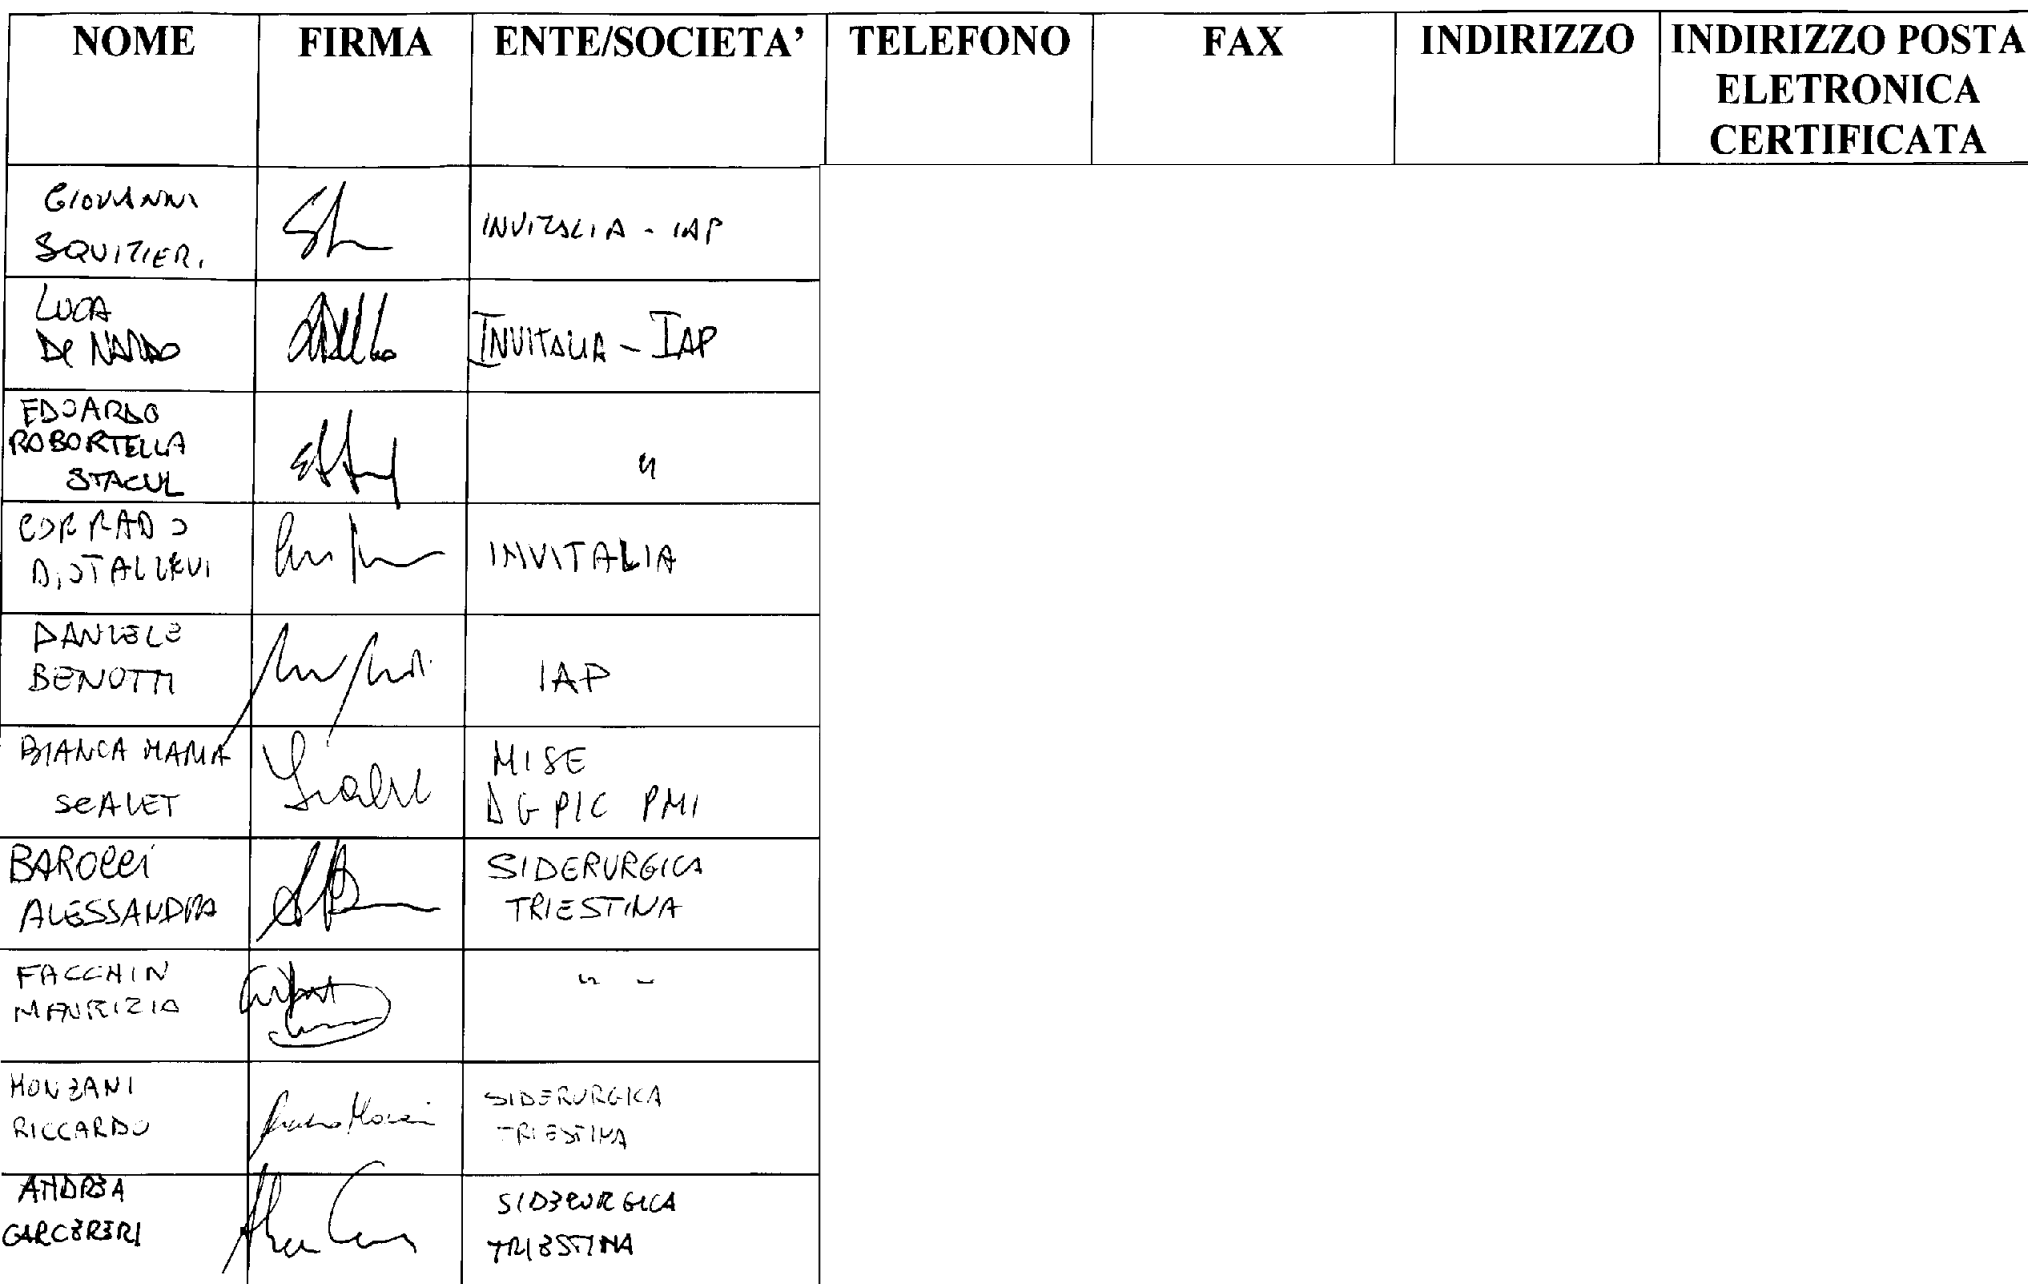 NOME FIRMA ENTE/SOCIETA' TELEFONO FAX INDIRIZZO INDIRIZZO POSTA
ELETRONICA
CERTIFICATA
GIOVANNI
SQUITIERI
INVITALIA - IAP
LUCA
DE NARDO
INVITALIA - IAP
EDOARDO
ROBORTELLA
STACUL
"
CORRADO
DIOTALLEVI
INVITALIA
DANIELE
BENOTTI
IAP
BIANCA MARIA
SCALET
MISE
DGPIC PMI
BAROCCI
ALESSANDRA
SIDERURGICA
TRIESTINA
FACCHIN
MAURIZIO
" -
MONZANI
RICCARDO
SIDERURGICA
TRIESTINA
ANDREA
GARCERERI
SIDERURGICA
TRIESTINA